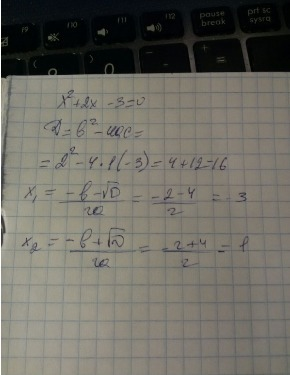 F9
F10
F11
F12
pause
break
prt sc
sysrq
x²+2x-3=0
D=b²-4ac=
=2²-4·1(-3)=4+12=16
x₁ = (-b-√D)/2a = (-2-4)/2 = -3
x₂ = (-b+√D)/2a = (-2+4)/2 = 1